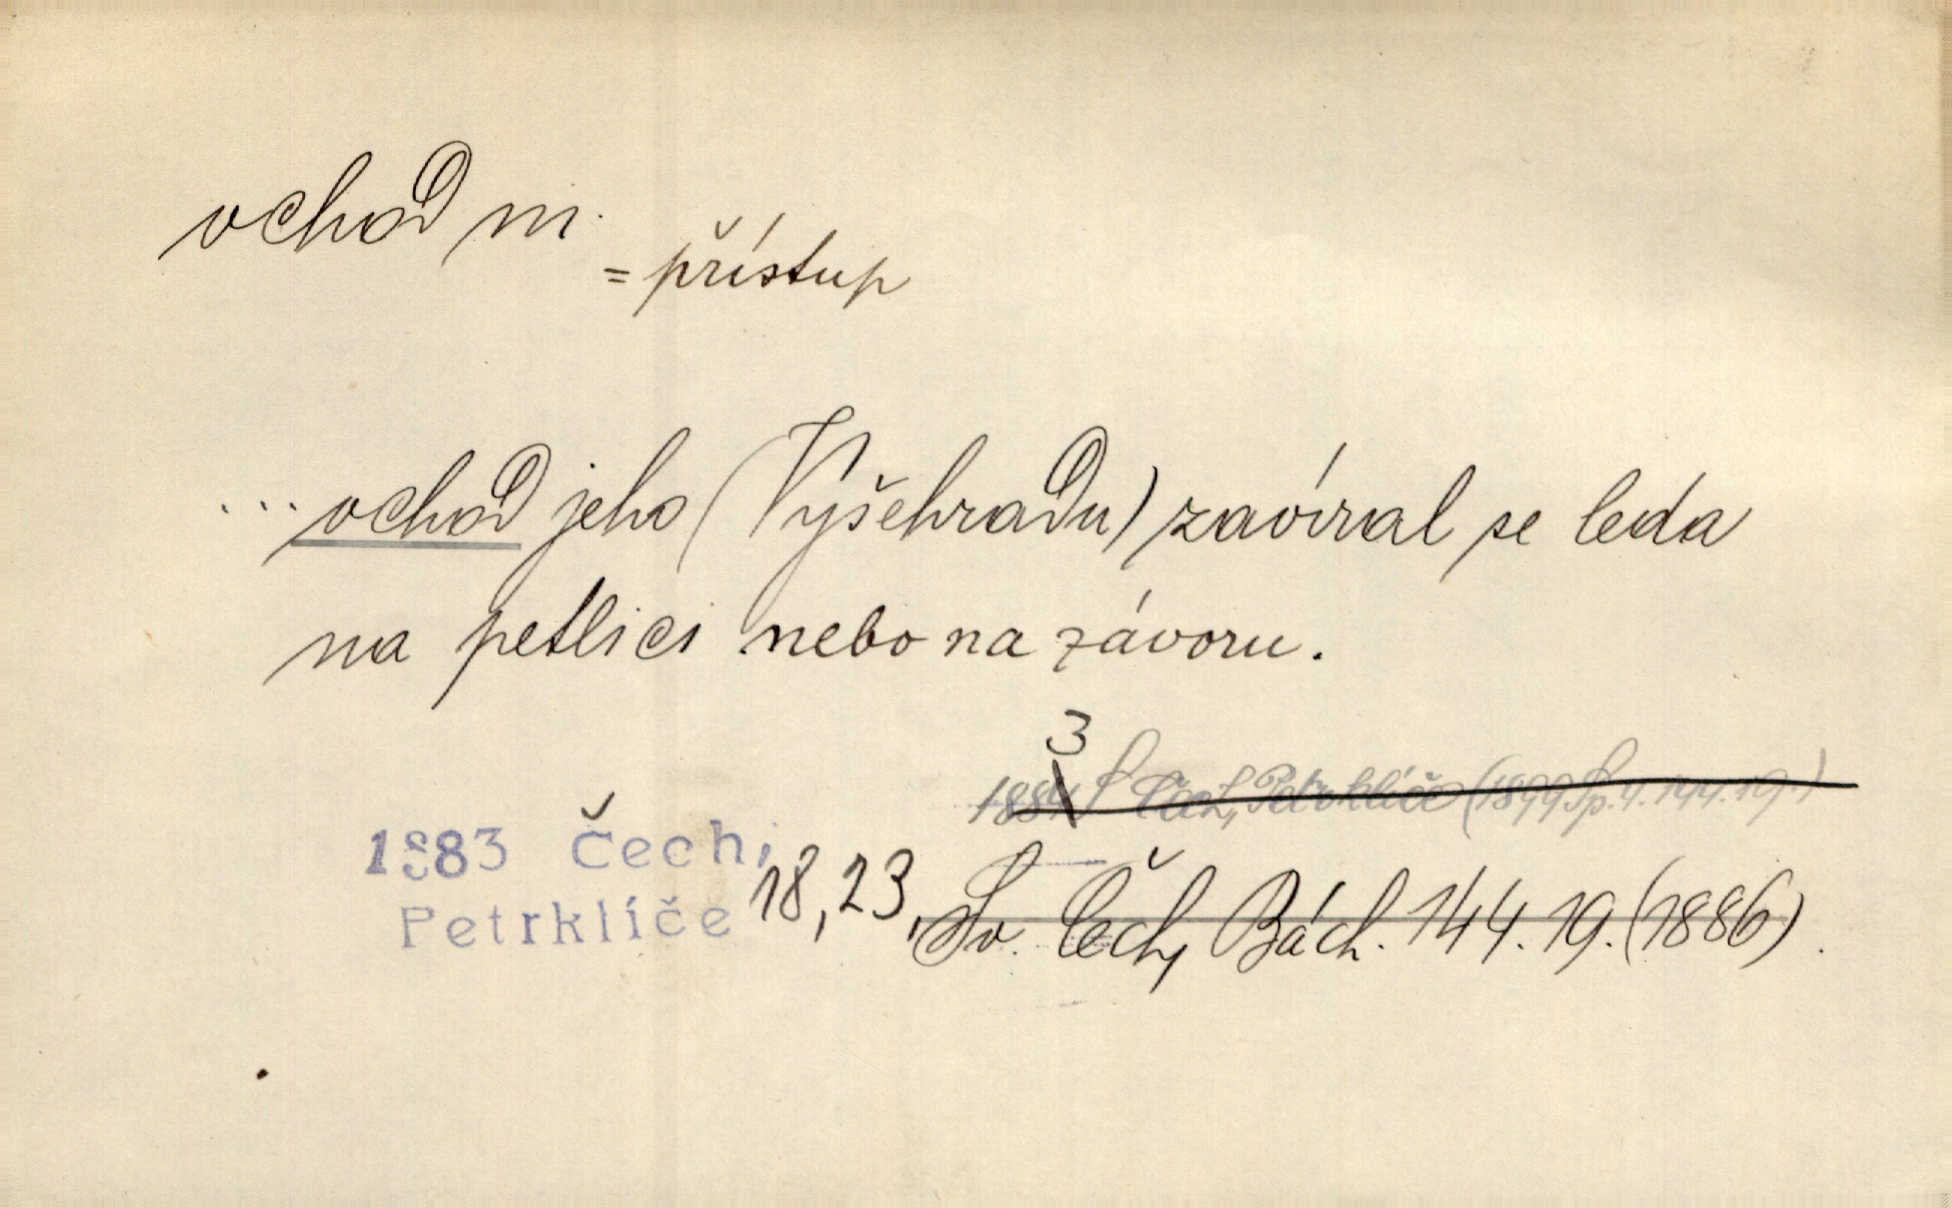 vchod m.
= přístup
... vchod jeho (Vyšehradu) zavíral se leda
na petlici nebo na závoru.
3
1884 Čech, Petrklíče (1899 Sp. 4. 144. 19.)
1883 Čech,
Petrklíče 18, 23, Sv. Čech, Bách. 144. 19. (1886).